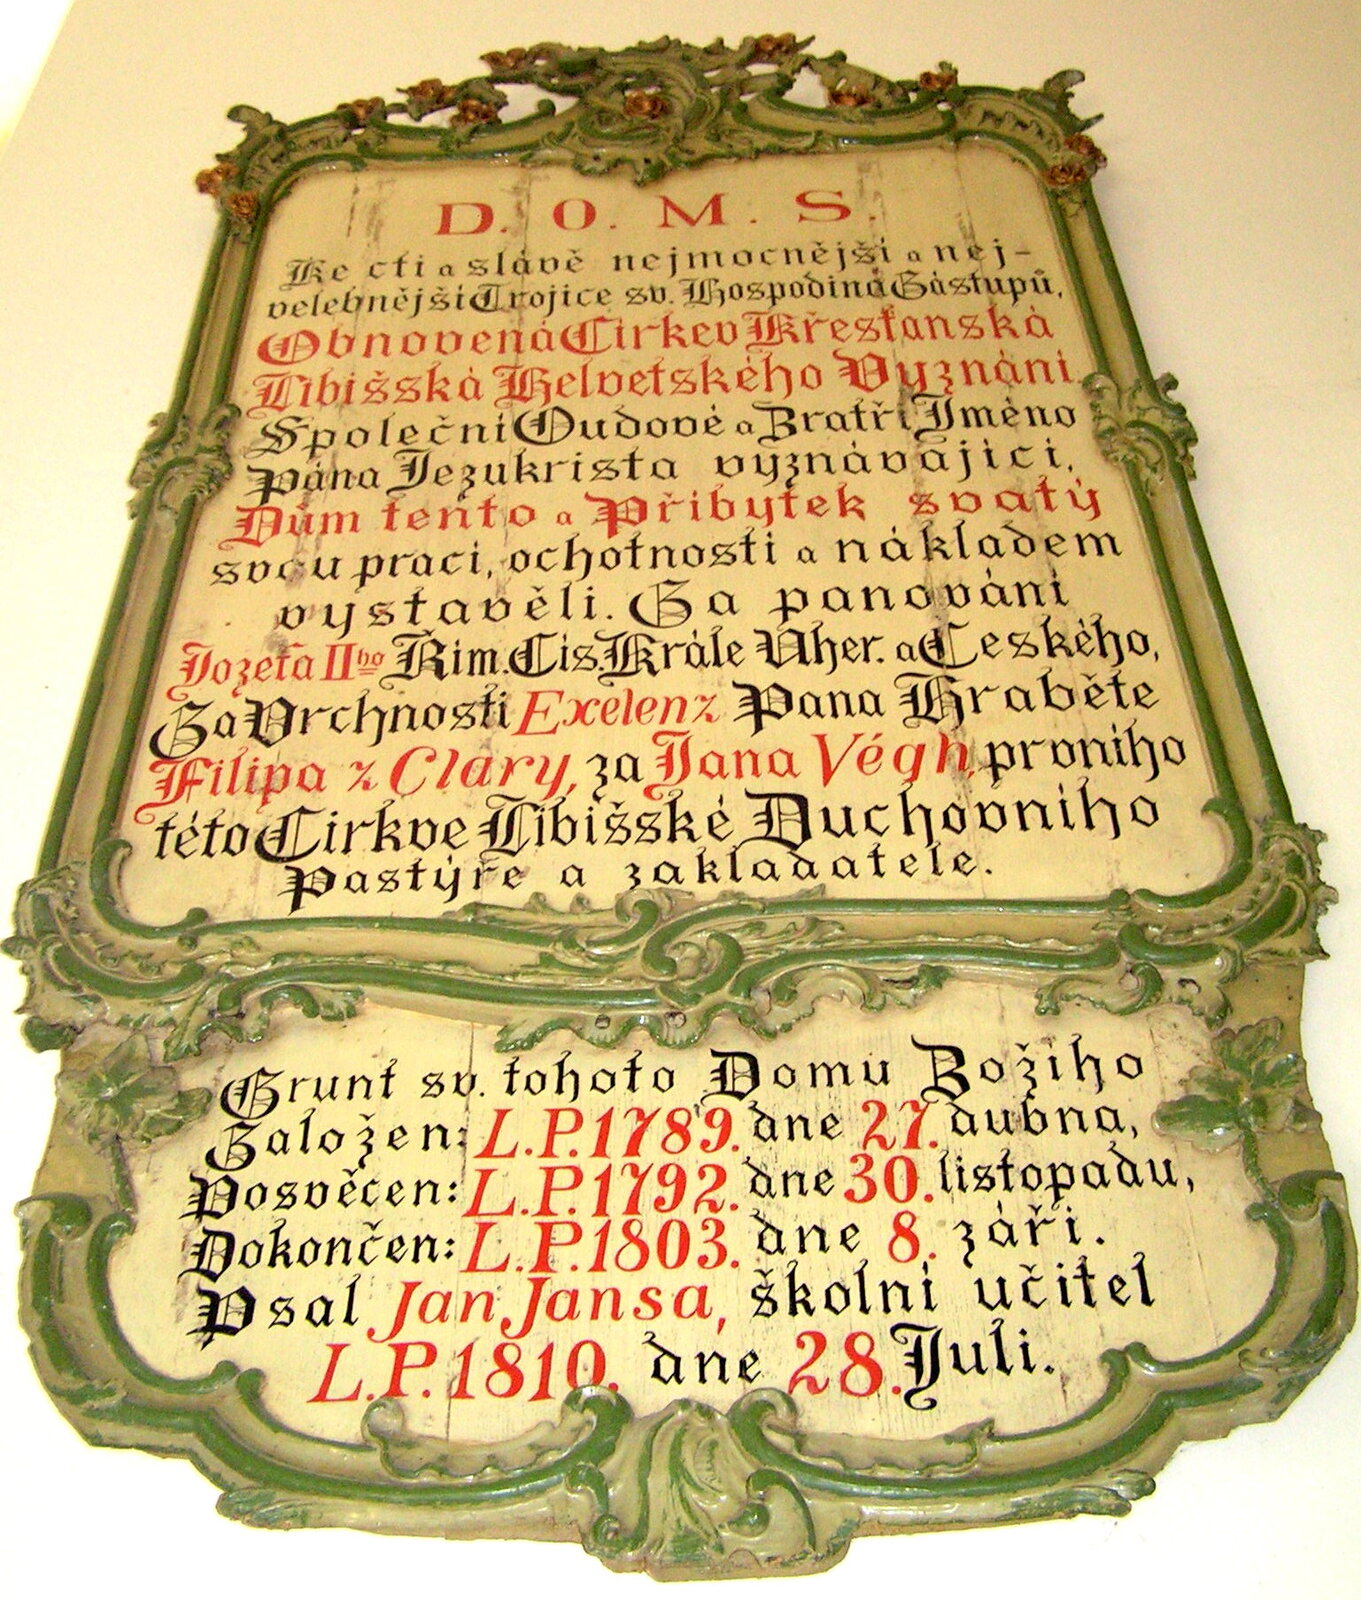 D. O. M. S.
Ke cti a slávě nejmocnější a nej-
velebnější Trojice sv. Hospodina Zástupů,
Obnovená Cirkev Křesťanská
Libišská Helvetského Vyznání
Společní Oudové a Bratři Jméno
Pána Jezukrista vyznávající,
Dům tento a Příbytek svatý
svou prací, ochotností a nákladem
vystavěli. Za panování
Jozefa II ho Řím. Cís. Krále Uher. a Českého,
Za Vrchnosti Exelenz Pana Hraběte
Filipa z Clary, za Jana Végh, prvního
této Církve Libišské Duchovního
Pastýře a zakladatele.
Grunt sv. tohoto Domu Božího
Založen: L.P. 1789. dne 27. dubna,
Posvěcen: L.P. 1792. dne 30. listopadu,
Dokončen: L.P. 1803. dne 8. září.
Psal Jan Jansa, školní učitel
L.P. 1810. dne 28. Juli.